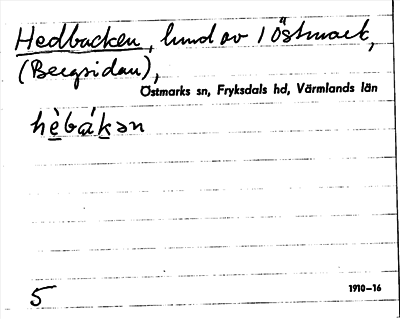 Hedbacken, lund av 1 Östmark,
(Bergsidan),
Östmarks sn, Fryksdals hd, Värmlands län
hèbákən
5
1910–16